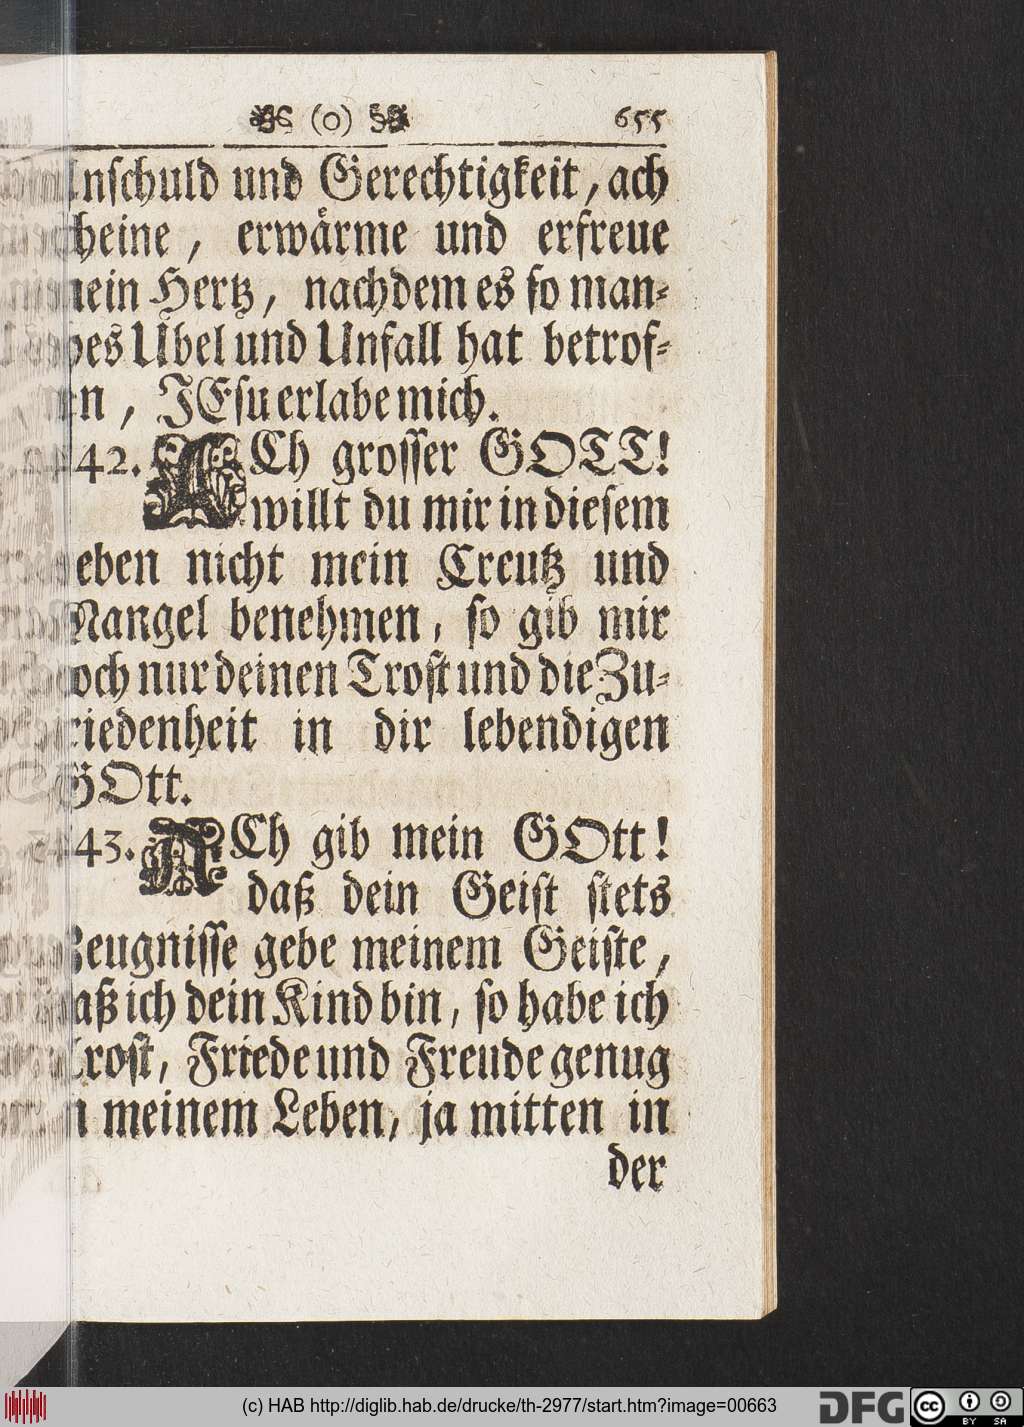 (o) 655
nschuld und Gerechtigkeit, ach
heine, erwärme und erfreue
mein Hertz, nachdem es so man-
ches Ubel und Unfall hat betrof-
en, JEsu erlabe mich.
42. ACh grosser GOTT!
willt du mir in diesem
eben nicht mein Creutz und
Mangel benehmen, so gib mir
och nur deinen Trost und die Zu-
riedenheit in dir lebendigen
GOtt.
43. ACh gib mein GOtt!
daß dein Geist stets
Zeugnisse gebe meinem Geiste,
aß ich dein Kind bin, so habe ich
Trost, Friede und Freude genug
n meinem Leben, ja mitten in
der
(c) HAB http://diglib.hab.de/drucke/th-2977/start.htm?image=00663
DFG
cc BY SA